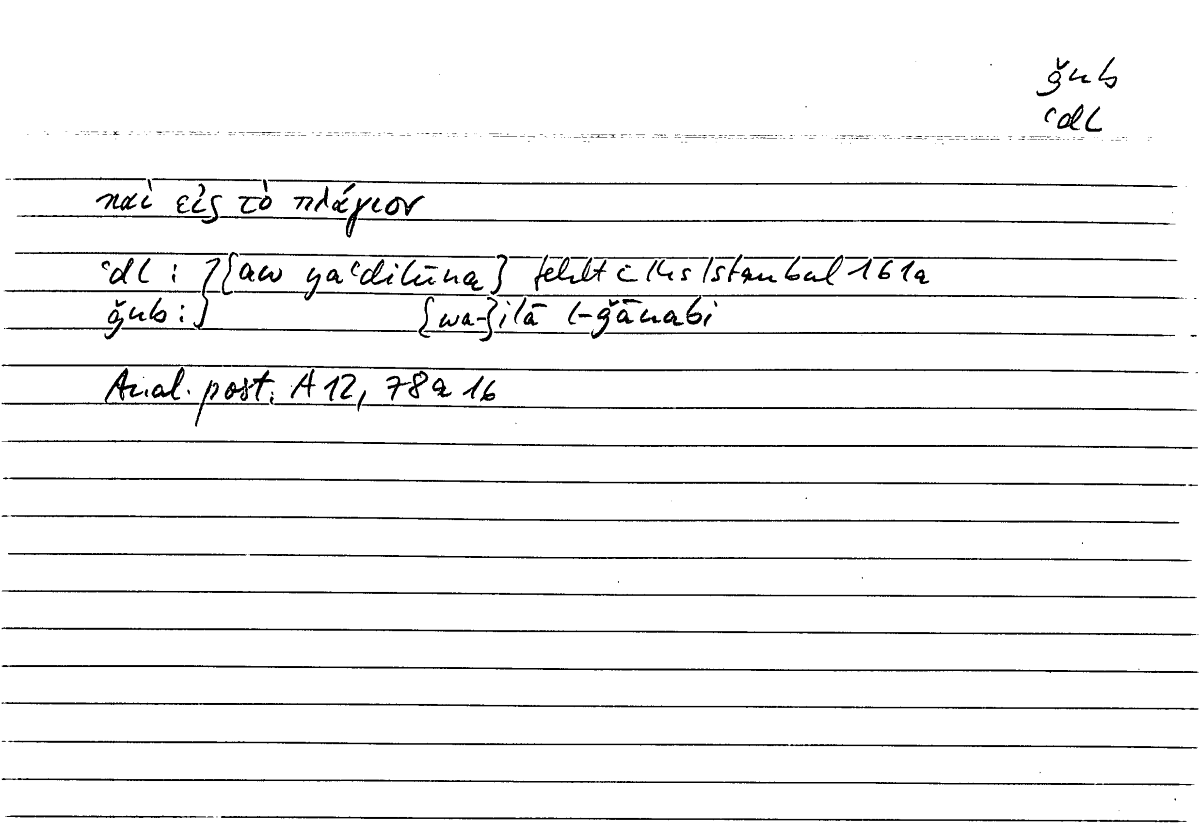 ǧnb
ʿdl
καὶ εἰς τὸ πλάγιον
ʿdl : } {aw yaʿdilūna} fehlt i Hs Istanbul 161a
ǧnb : } {wa-}ilā l-ǧānabi
Anal. post. A 12, 78a 16